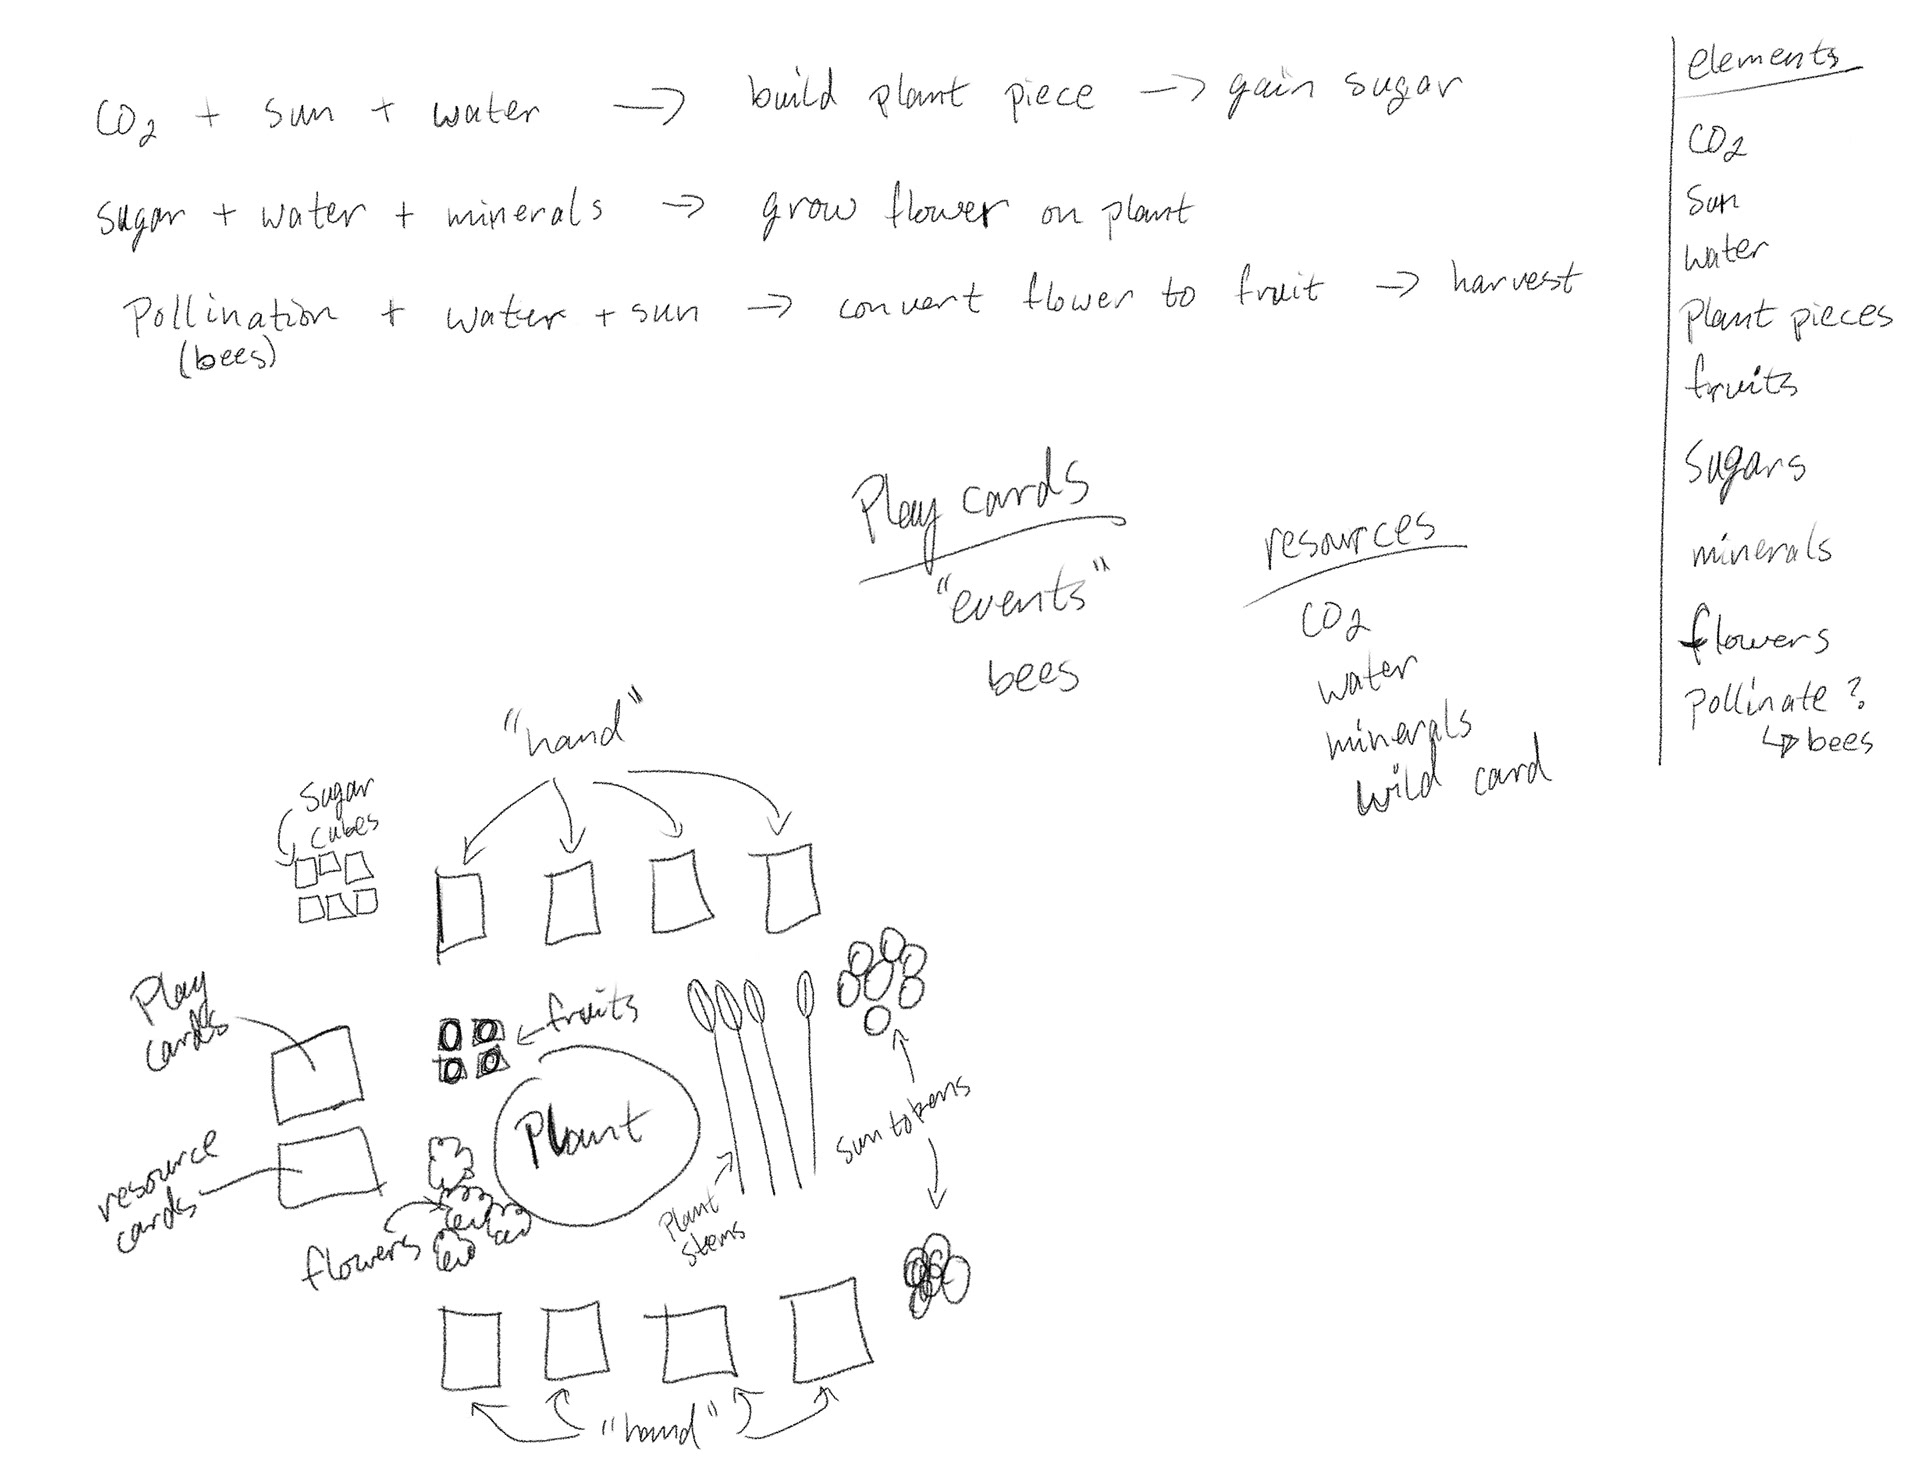 CO2 + sun + water → build plant piece → gain sugar
sugar + water + minerals → grow flower on plant
Pollination + water + sun → convert flower to fruit → harvest
(bees)
elements
CO2
Sun
water
Plant pieces
fruits
Sugars
minerals
flowers
pollinate?
↳ bees
Play cards
"events"
bees
resources
CO2
water
minerals
wild card
"hand"
Sugar
cubes
Play
cards
fruits
Plant
resource
cards
flowers
Plant
stems
sun tokens
"hand"